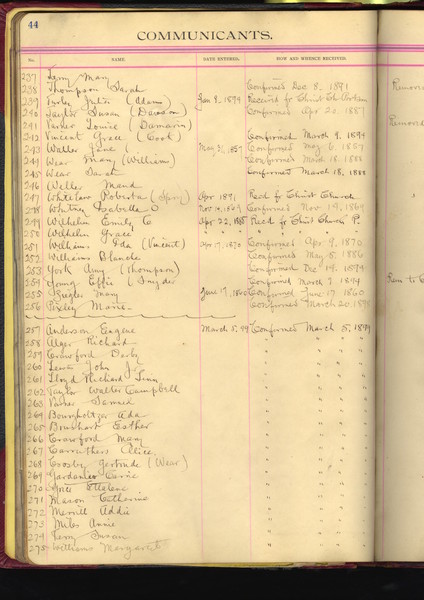 44
COMMUNICANTS.
No. NAME. DATE ENTERED. HOW AND WHENCE RECEIVED.
237 Terry Mary
238 Thompson Sarah Confirmed Dec 8, 1891 Remov
239 Turley Julia (Adams) Jan 8, 1894 Received fr Christ Ch
240 Taylor Susan (Dawson) Confirmed Apr 20, 1887
241 Parker Louise (Damarin) Remov
242 Vincent Grace (Cook) Confirmed March 9, 1894
243 Waller Jane Confirmed May 6, 1859
244 Wear Mary (Williams) Confirmed March 18, 1888
245 Wear Sarah Confirmed March 18, 1888
246 Weller Maud
247 Whitelaw Roberta Apr 1891 Recd fr Christ Church
248 Whitney Isabella Nov 14, 1869 Confirmed Nov 14, 1869
249 Wilhelm Emily C Apr 22, Recd fr Christ Church P.
250 Wilhelm Grace " " " "
251 Williams Ida (Vincent) Apr 17, 1870 Confirmed Apr 9, 1870
252 Williams Blanche Confirmed May 5, 1886
253 York Amy (Thompson) Confirmed Dec 14, 1894
254 Young Effie (Snyder Confirmed March 9 1894 Rem to C
255 Zeigler Mary June 17, 1860 Confirmed June 17 1860
256 Pixley Marie Confirmed March 20, 189
257 Anderson Eugene March 5, 99 Confirmed March 5, 1899
258 Alger Richard " "
259 Crawford Derby " "
260 Lewis John J " "
261 Lloyd Richard " "
262 Taylor Walter Campbell " "
263 Parker Samuel " "
264 Bourgholtzer Ada " "
265 Bourshart Esther " "
266 Crawford Mary " "
267 Carruthers Alice " "
268 Crosby Gertrude (Wear) " "
269 Gardanier Carrie " "
270 Ethelene " "
271 Mason Catherine " "
272 Merrill Addie " "
273 Miles Annie " "
274 Terry Susan " "
275 Williams Margaret " "